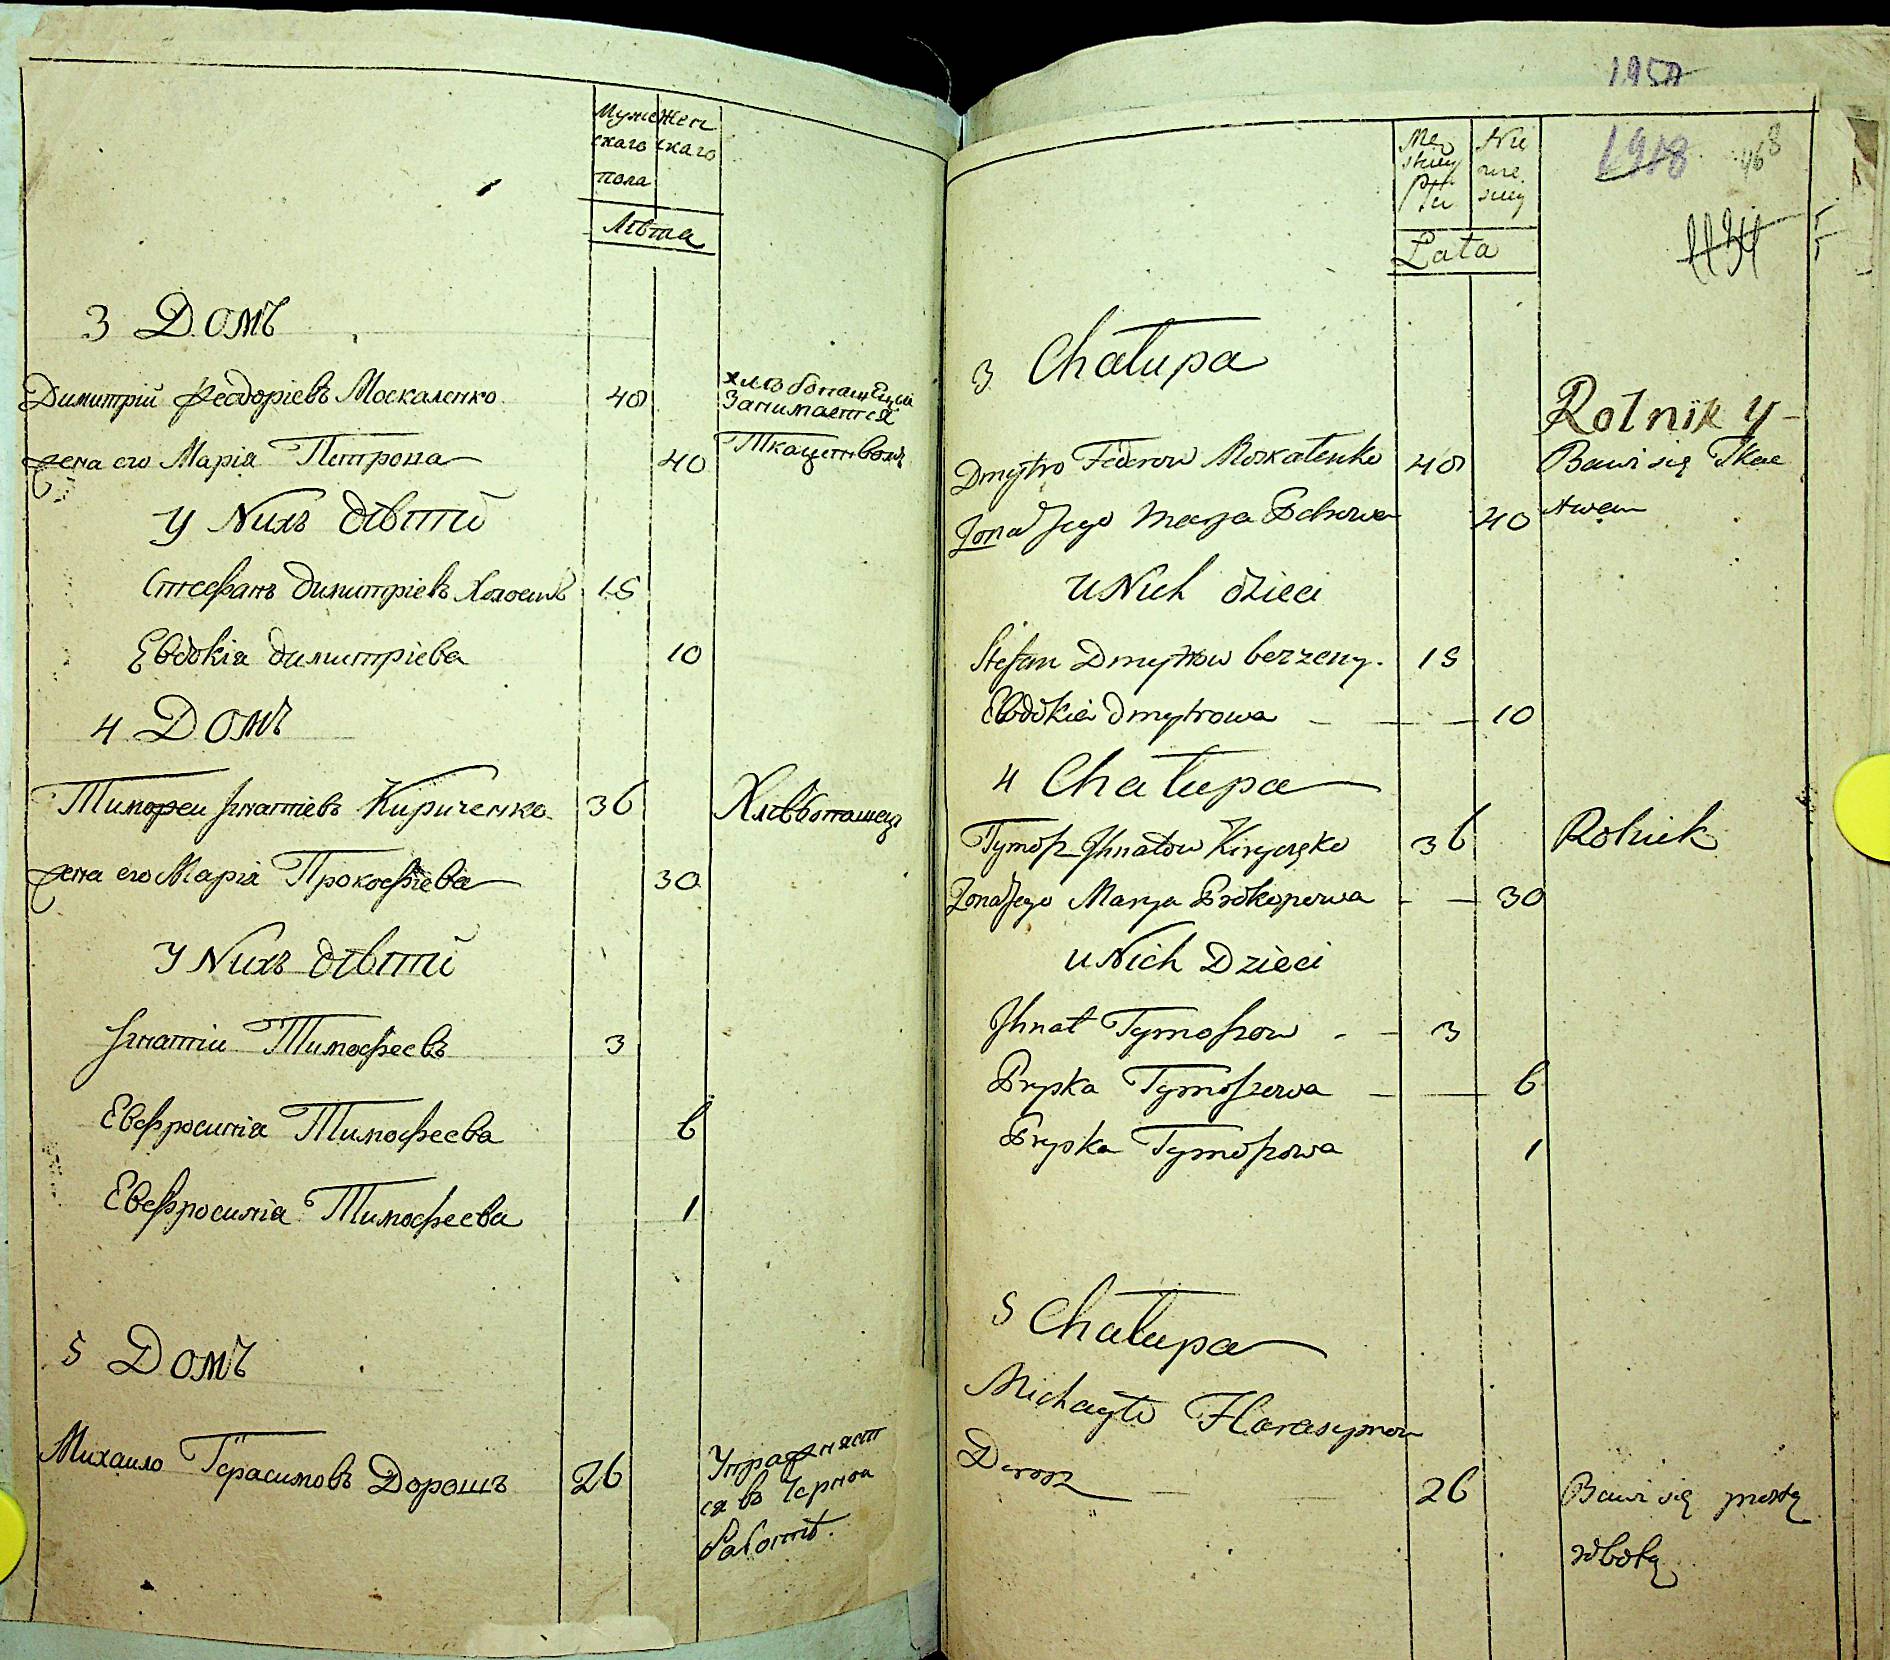 Муже Жен
скаго скаго
пола
Лѣта
3 Домъ
Димитрій Феодоріевъ Москаленко 40 хлѣбопашецъ
Занимается
жена его Марія Петрова 40 Ткацтвомъ
У Nихъ дѣтти
Стефанъ Димитріевъ Холостъ 15
Евдокія Димитріева 10
4 Домъ
Тимофеи Игнатіевъ Кириченко 36 Хлѣбопашец
жена его Марія Прокофіева 30
У Nихъ дѣтти
Игнатіи Тимофеевъ 3
Евфросинія Тимофеева 6
Евфросинія Тимофеева 1
5 Домъ
Михаило Герасимовъ Дорошъ 26 Упражняет
ся въ Чорной
Работѣ.
1950
1918 468
1134
Mę Nie
skiey wie
Płci skiey
Lata
3 Chałupa
Rolnik y
Dmytro Fedorow Moskalenko 40 Bawi się Tkac
Zona Jego Marya Petrowa 40 twem
U Nich dzieci
Stefan Dmytrow bezzeny. 15
Ewdokia Dmytrowa 10
4 Chałupa
Tymosz Ihnatow Kiryczeko 36 Rolnik
Zona Jego Marya Prokopowa 30
U Nich Dzieci
Ihnat Tymoszow 3
Pryska Tymoszowa 6
Pryska Tymoszowa 1
5 Chałupa
Michayło Harasymow
Dorosz 26 Bawi się prostą
robotą